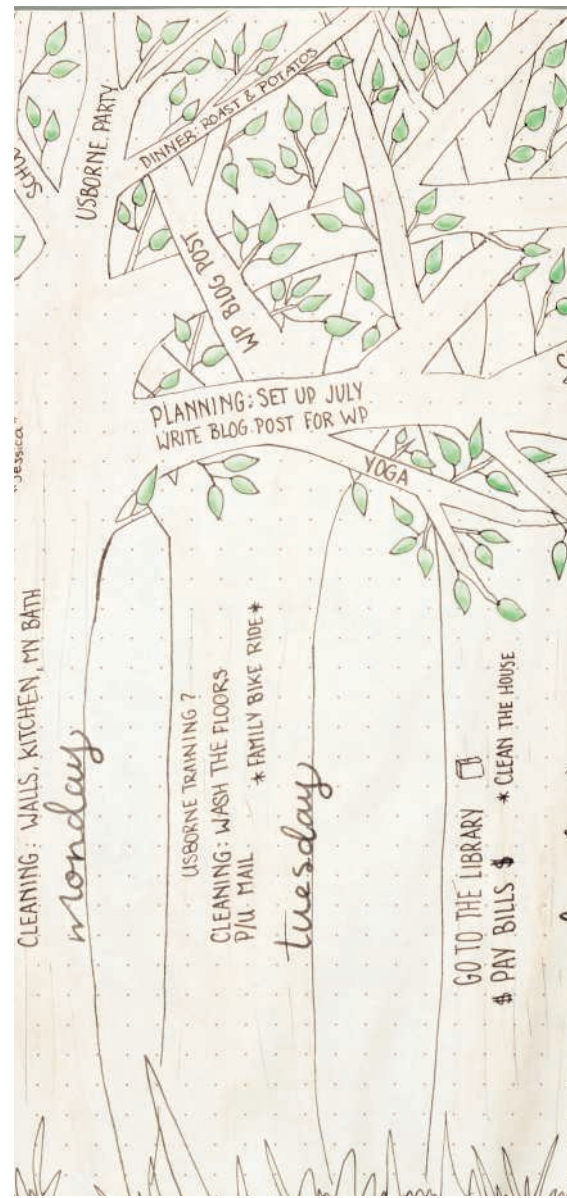 USBORNE PARTY
DINNER: ROAST & POTATOS
WP BLOG POST
PLANNING: SET UP JULY
WRITE BLOG POST FOR WP
YOGA
"Jessica"
CLEANING: WALLS, KITCHEN, MY BATH
monday
USBORNE TRAINING?
CLEANING: WASH THE FLOORS
P/U MAIL
*FAMILY BIKE RIDE*
tuesday
GO TO THE LIBRARY
$ PAY BILLS $
* CLEAN THE HOUSE